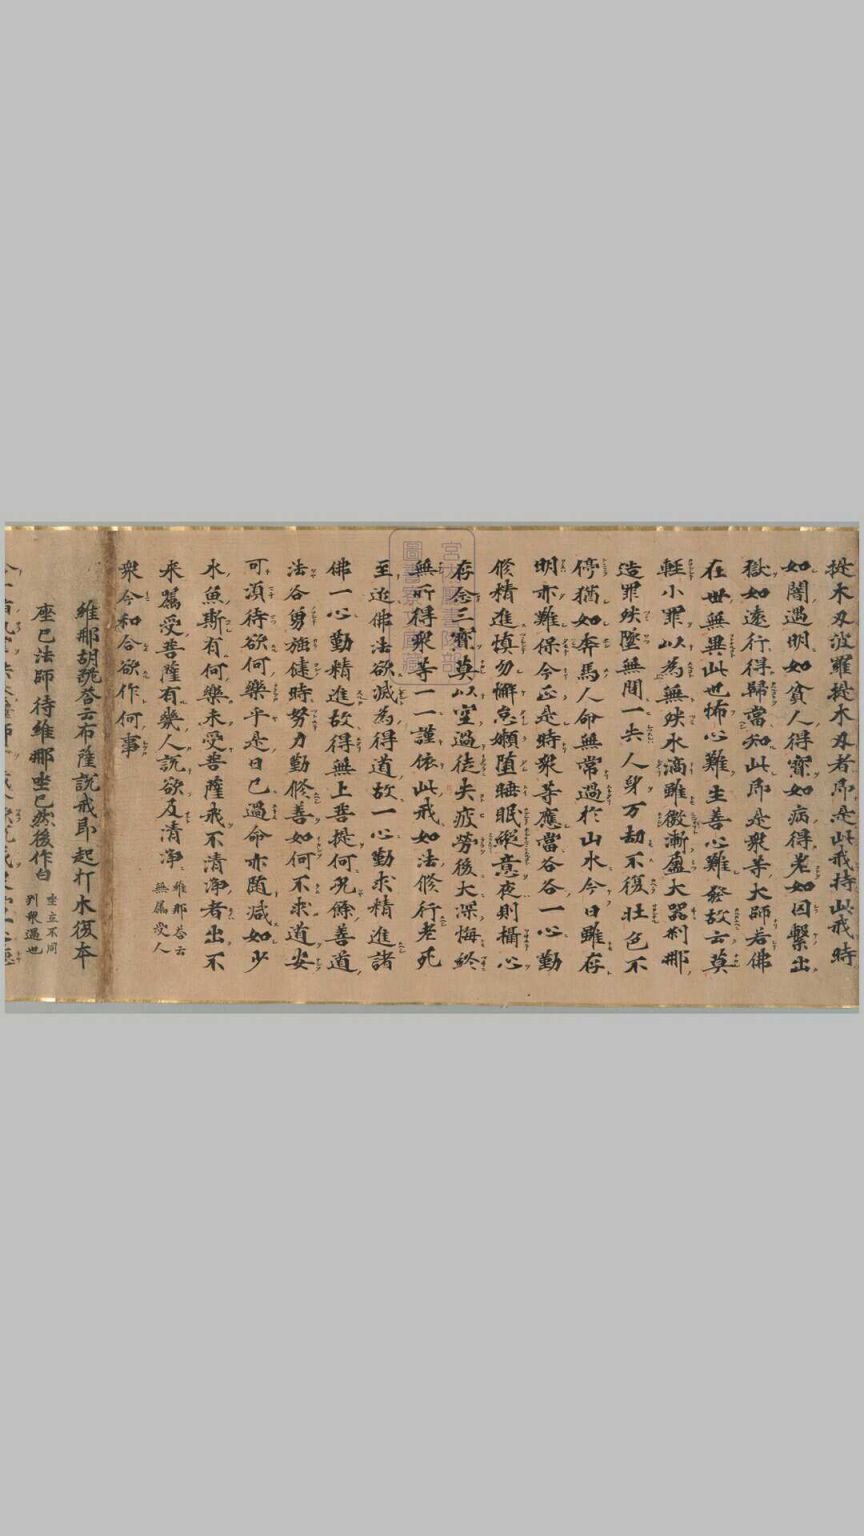 提木叉波羅提木叉者即是此戒持此戒時
如闇遇明如貧人得寶如病得差如囚繫出
獄如遠行得歸當知此即是衆等大師若佛
在世無異此也怖心難生善心難發故云莫
輕小罪以為無殃水滴雖微漸盈大器刹那
造罪殃墜無間一失人身万劫不復壯色不
停猶如奔馬人命無常過於山水今日雖存
明亦難保今正是時衆等應當各各一心勤
修精進慎勿懈怠嬾堕睡眠縱意夜則攝心
存念三寶莫以空過徒失疲勞後大深悔終
無所得衆等一一謹依此戒如法修行老死
至近佛法欲滅為得道故一心勤求精進諸
佛一心勤精進故得無上菩提何況餘善道
法各勇強健時努力勤修善如何不求道安
可湏待欲何樂乎是日已過命亦随减如少
水魚斯有何樂未受菩薩戒不清淨者出不
来囑受菩薩有幾人說欲及清淨 維那荅云無囑受人
衆今和合欲作何事
維那胡跪荅云布薩說戒耶起打木復本
座已法師待維那坐已然後作白 坐立不同別衆過也
宮内省図書寮文庫蔵